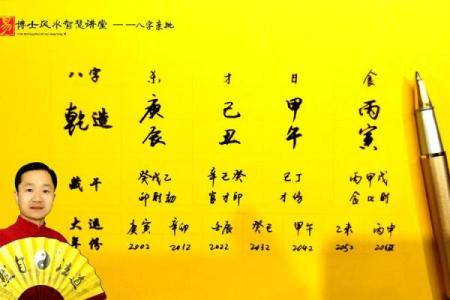 易 博士风水智慧讲堂 ——八字亲批
八字 杀 才 日 食
乾造 庚 己 甲 丙
辰 丑 午 寅
藏干 癸戊乙 辛己癸 己丁 丙甲戊
印财劫 官才印 才伤 食 财
大運 庚寅 辛卯 壬辰 癸巳 甲午 乙未 丙申
年份 2002 2012 2022 2032 2042 2052